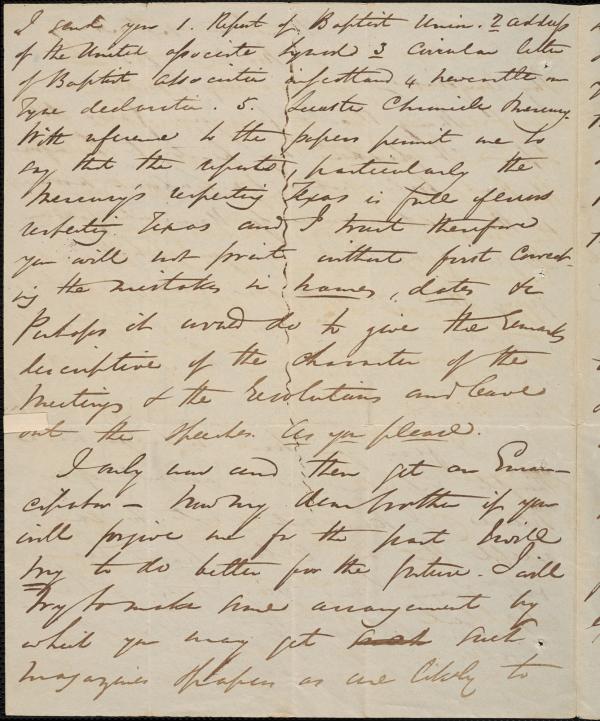 I send you 1. Report of Baptist Union. 2 address
of the United associate synod 3 Circular letter
of Baptist association in Scotland 4 Newcastle on
Tyne declaration. 5. Leicester Chronicle Mercury.
With reference to the papers permit me to
say that the reports, particularly the
Mercury's respecting Texas is full of errors
respecting Texas and I trust therefore
you will not print without first correct-
ing the mistakes in names, dates &c
Perhaps it would do to give the remarks
descriptive of the character of the
Meetings & the resolutions and leave
out the speeches. As you please.
I only now and then get an Eman-
cipator – Now my dear brother if you
will forgive me for the past I will
try to do better for the future. I will
try to make some arrangement by
which you may get such
magazines & papers as are likely to